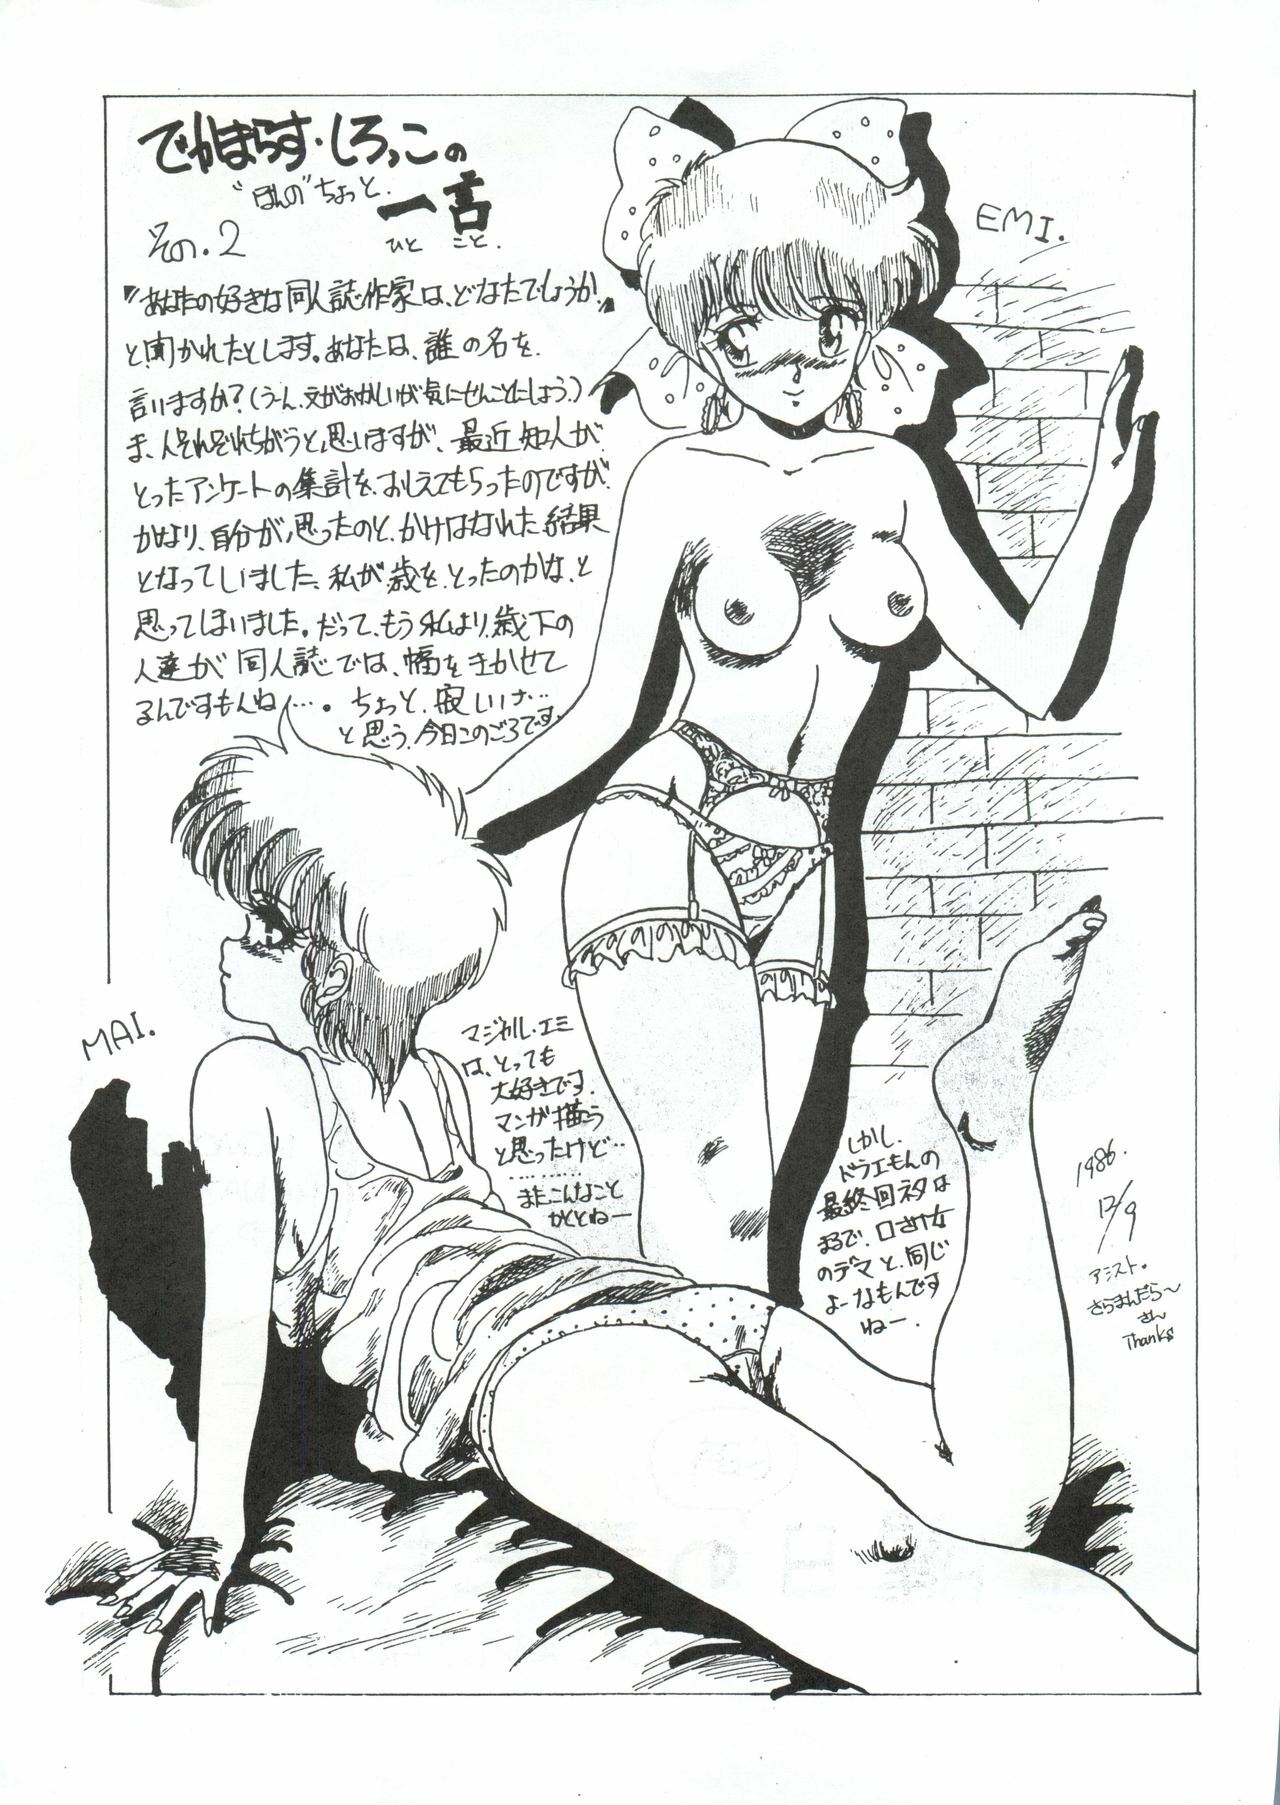 でかまらす・しろっこの
"ほんの"ちょっと
一言
ひとこと.
その.2
EMI.
"あなたの好きな同人誌作家は、どなたでしょうか"
と聞かれたとします。あなたは、誰の名を
言いますか?(うーん、文がおかしいが気にせんことにしよう。)
ま、人それぞれちがうと思いますが、最近知人が
とったアンケートの集計を、おしえてもらったのですが
かなり、自分が思ったのと、かけはなれた結果
となってしいました、私が歳を、とったのかな、と
思ってしまいました。だって、もう私より、歳下の
人達が同人誌では、幅をきかせて
るんですもんね……。ちょっと、寂しいナ…
と思う、今日このごろです。
MAI.
マジカル・エミ
は、とっても
大好きです。
マンガ描こう
と思ったけど…
…………
またこんなこと
かくとねー
しかし、
ドラエもんの
最終回ネタは
まるで、口さけ女
のデマと、同じ
よーなもんです
ねー.
1986.
12/9
アシスト.
さらまんだら〜
さん
Thanks